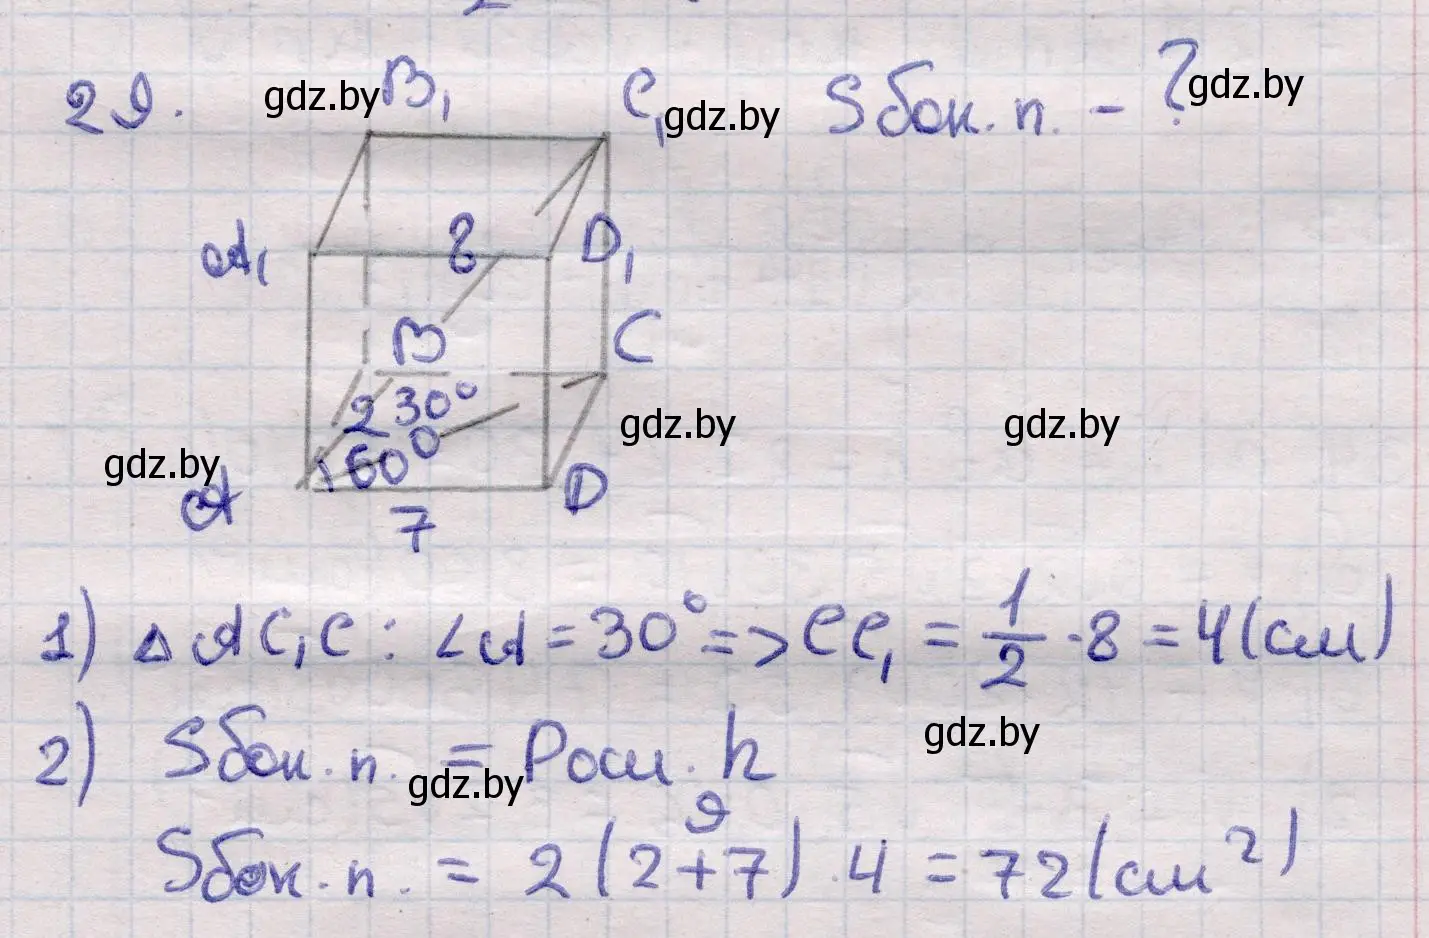 29. gdz.by B₁ C₁ gdz.by Sбок.п. - ? gdz.by
A₁ 8 D₁
B C
2 30° gdz.by gdz.by
gdz.by 60°
A D
7
1) △ AC₁C : ∠A = 30° => CC₁ = 1/2 · 8 = 4 (см)
gdz.by
2) Sбок.п. = Pосн. h
gdz.by
9
Sбок.п. = 2(2+7) · 4 = 72 (см²)